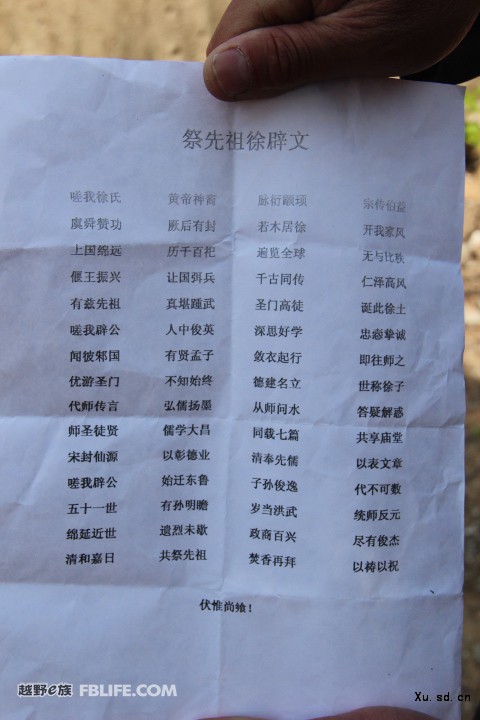 祭先祖徐辟文
嗟我徐氏 黄帝神裔 脉衍颛顼 宗传伯益
虞舜赞功 厥后有封 若木居徐 开我家风
上国绵远 历千百祀 遍览全球 无与比轶
偃王振兴 让国弭兵 千古同传 仁泽高风
有兹先祖 真堪踵武 圣门高徒 诞此徐土
嗟我辟公 人中俊英 深思好学 忠悫挚诚
闻彼邾国 有贤孟子 敛衣起行 即往师之
优游圣门 不知始终 德建名立 世称徐子
代师传言 弘儒扬墨 从师问水 答疑解惑
师圣徒贤 儒学大昌 同载七篇 共享庙堂
宋封仙源 以彰德业 清奉先儒 以表文章
嗟我辟公 始迁东鲁 子孙俊逸 代不可数
五十一世 有孙明瞻 岁当洪武 统师反元
绵延近世 遗烈未歇 政商百兴 尽有俊杰
清和嘉日 共祭先祖 焚香再拜 以祷以祝
伏惟尚飨！
越野e族 FBLIFE.COM
Xu.sd.cn